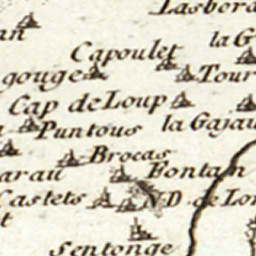 Lasbord
an
la G
Capoulet
gouge
Tour
Cap de Loup
Puntous
la Gajau
Brocas
arau
Fontain
Castets
N.D. de Lor
t
Sentonge